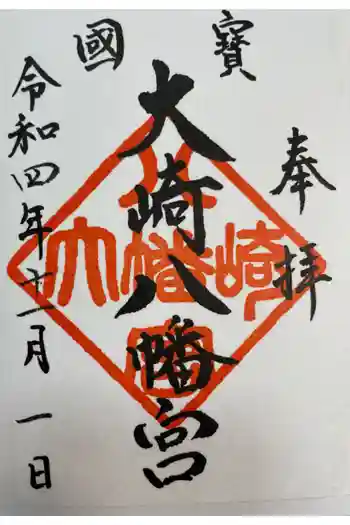 國寶
奉拝
大崎八幡宮
令和四年十一月一日